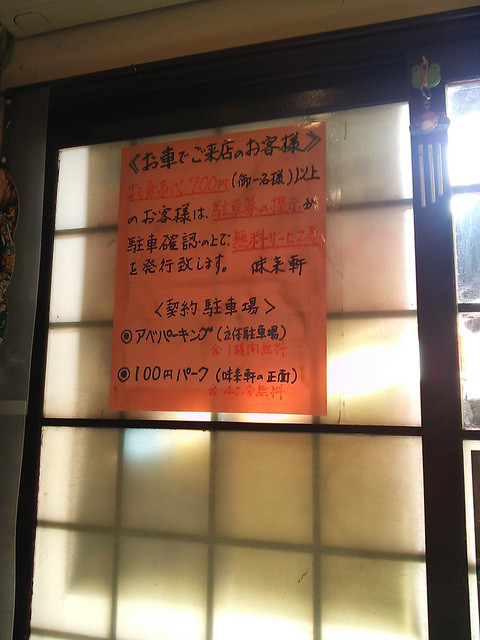 《お車でご来店のお客様》
お食事代700円(御一名様)以上
のお客様は、駐車券の提示か
駐車確認の上で、無料サービス券
を発行致します。 味来軒
<契約駐車場>
◉アベパーキング(立体駐車場)
※1時間無料
◉100円パーク(味来軒の正面)
※40分無料